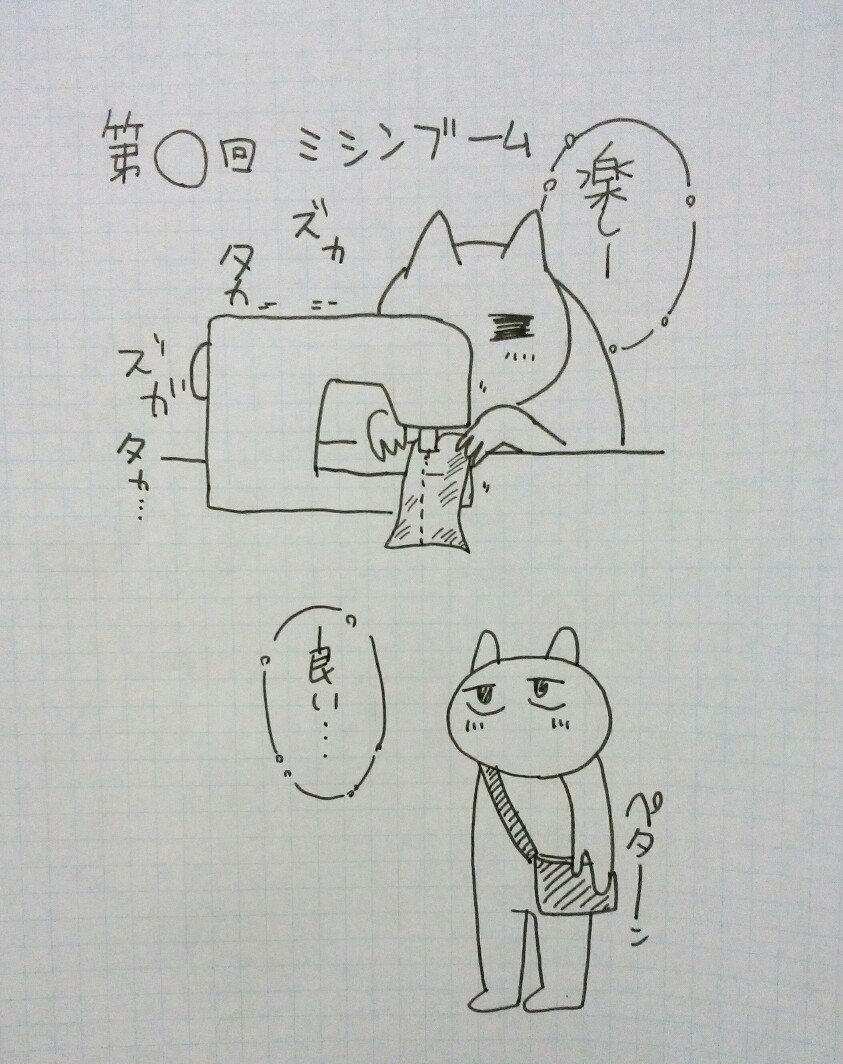 第〇回 ミシンブーム
楽しー
ズカ
タカ
ズガ
タカ…
良い…
ペターン